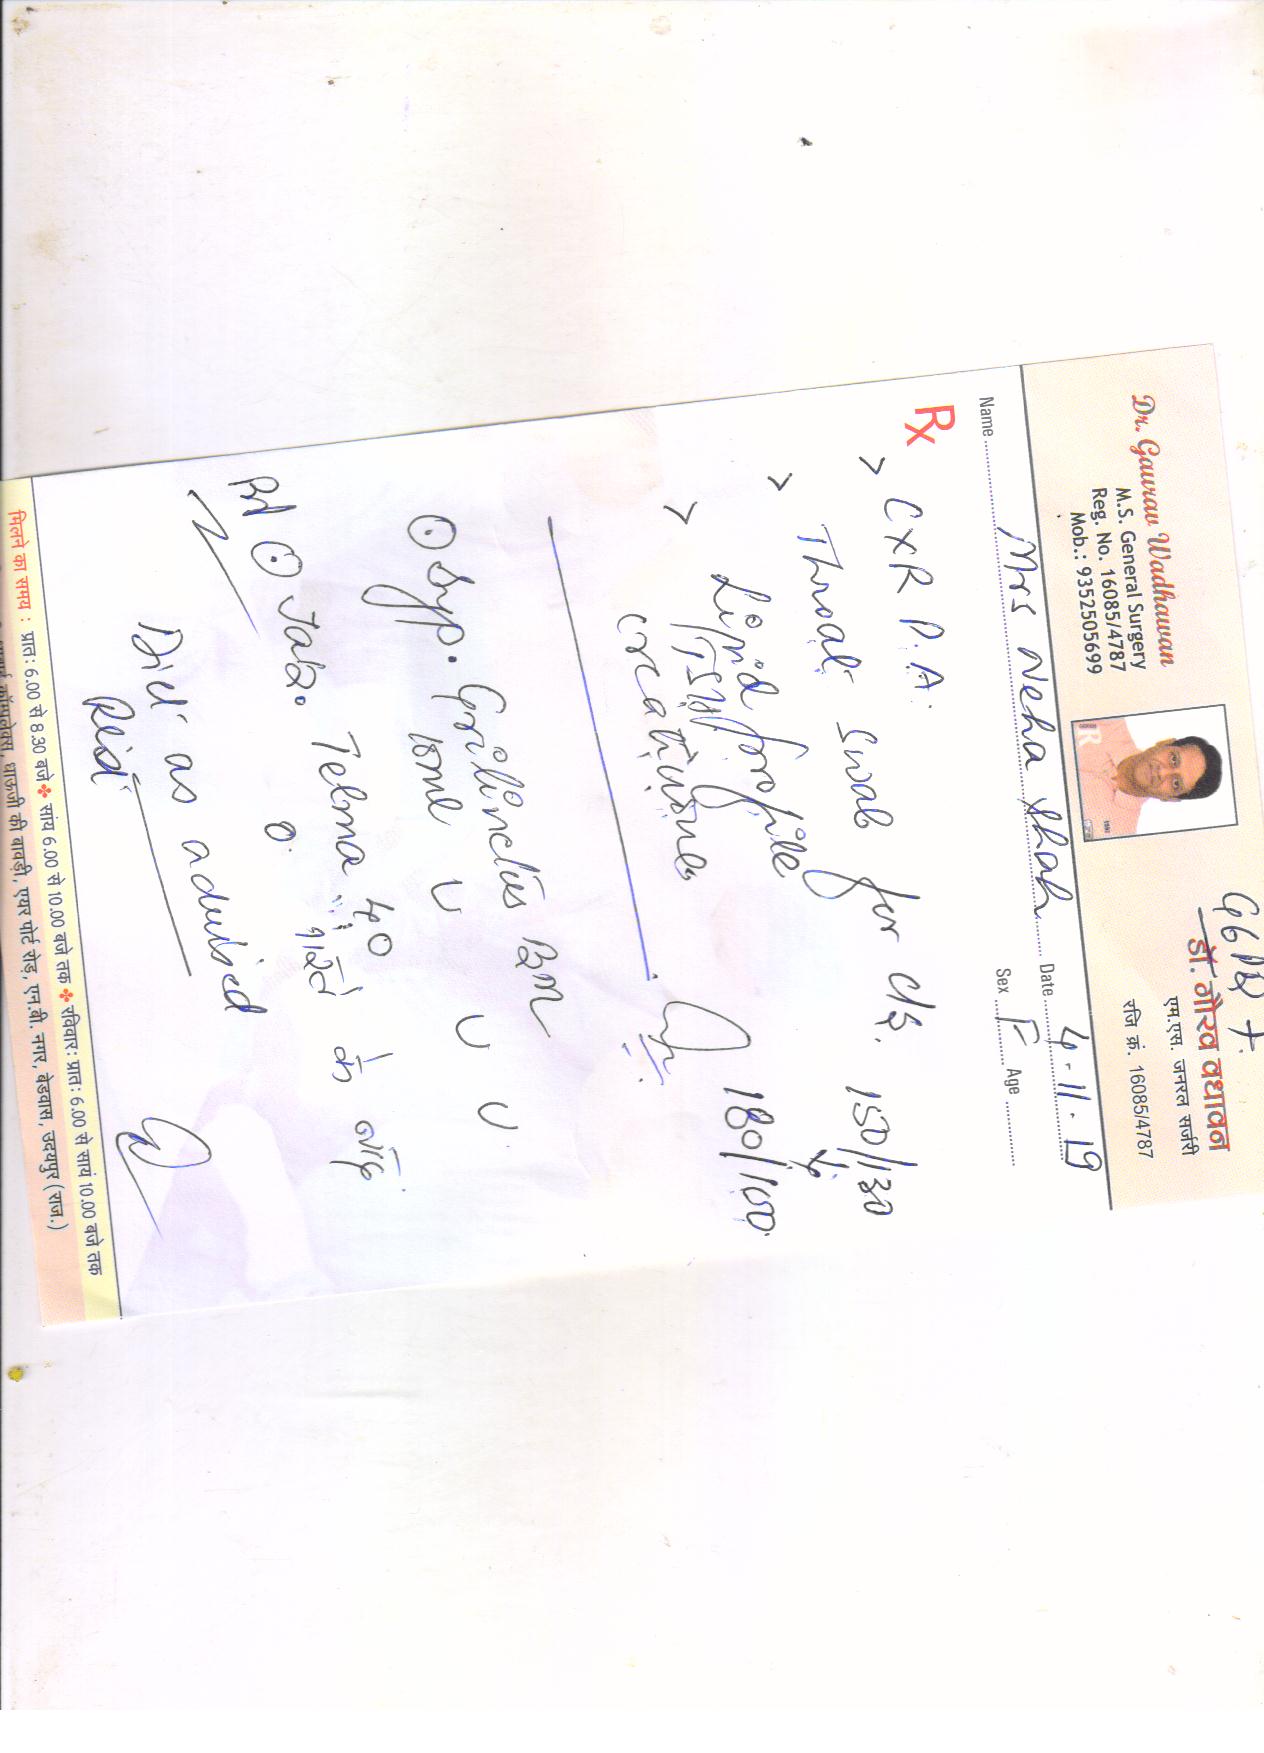 Dr. Gaurav Wadhawan
M.S. General Surgery
Reg. No. 16085/4787
Mob.: 9352505699
डॉ. गौरव वधावन
एम.एस. जनरल सर्जरी
रजि क्रं. 16085/4787
Name Mrs Neha Shah Date 4.11.19
Sex F Age
Rx
> CXR P.A.
> Throat Swab for c/s. 150/130
> Lipid profile 180/100
TSH
creatinine
⊙ Syp. Grilinctus BM
10ml
⊙ Tab. Telma 40
0
नाश्ते के बाद
Diet as advised
Rest
मिलने का समय : प्रात: 6.00 से 8.30 बजे ❖ सांय 6.00 से 10.00 बजे तक ❖ रविवार: प्रात: 6.00 से सायं 10.00 बजे तक
कॉम्पलेक्स, धाऊजी की बावड़ी, एयर पोर्ट रोड़, एन.बी. नगर, बेडवास, उदयपुर (राज.)